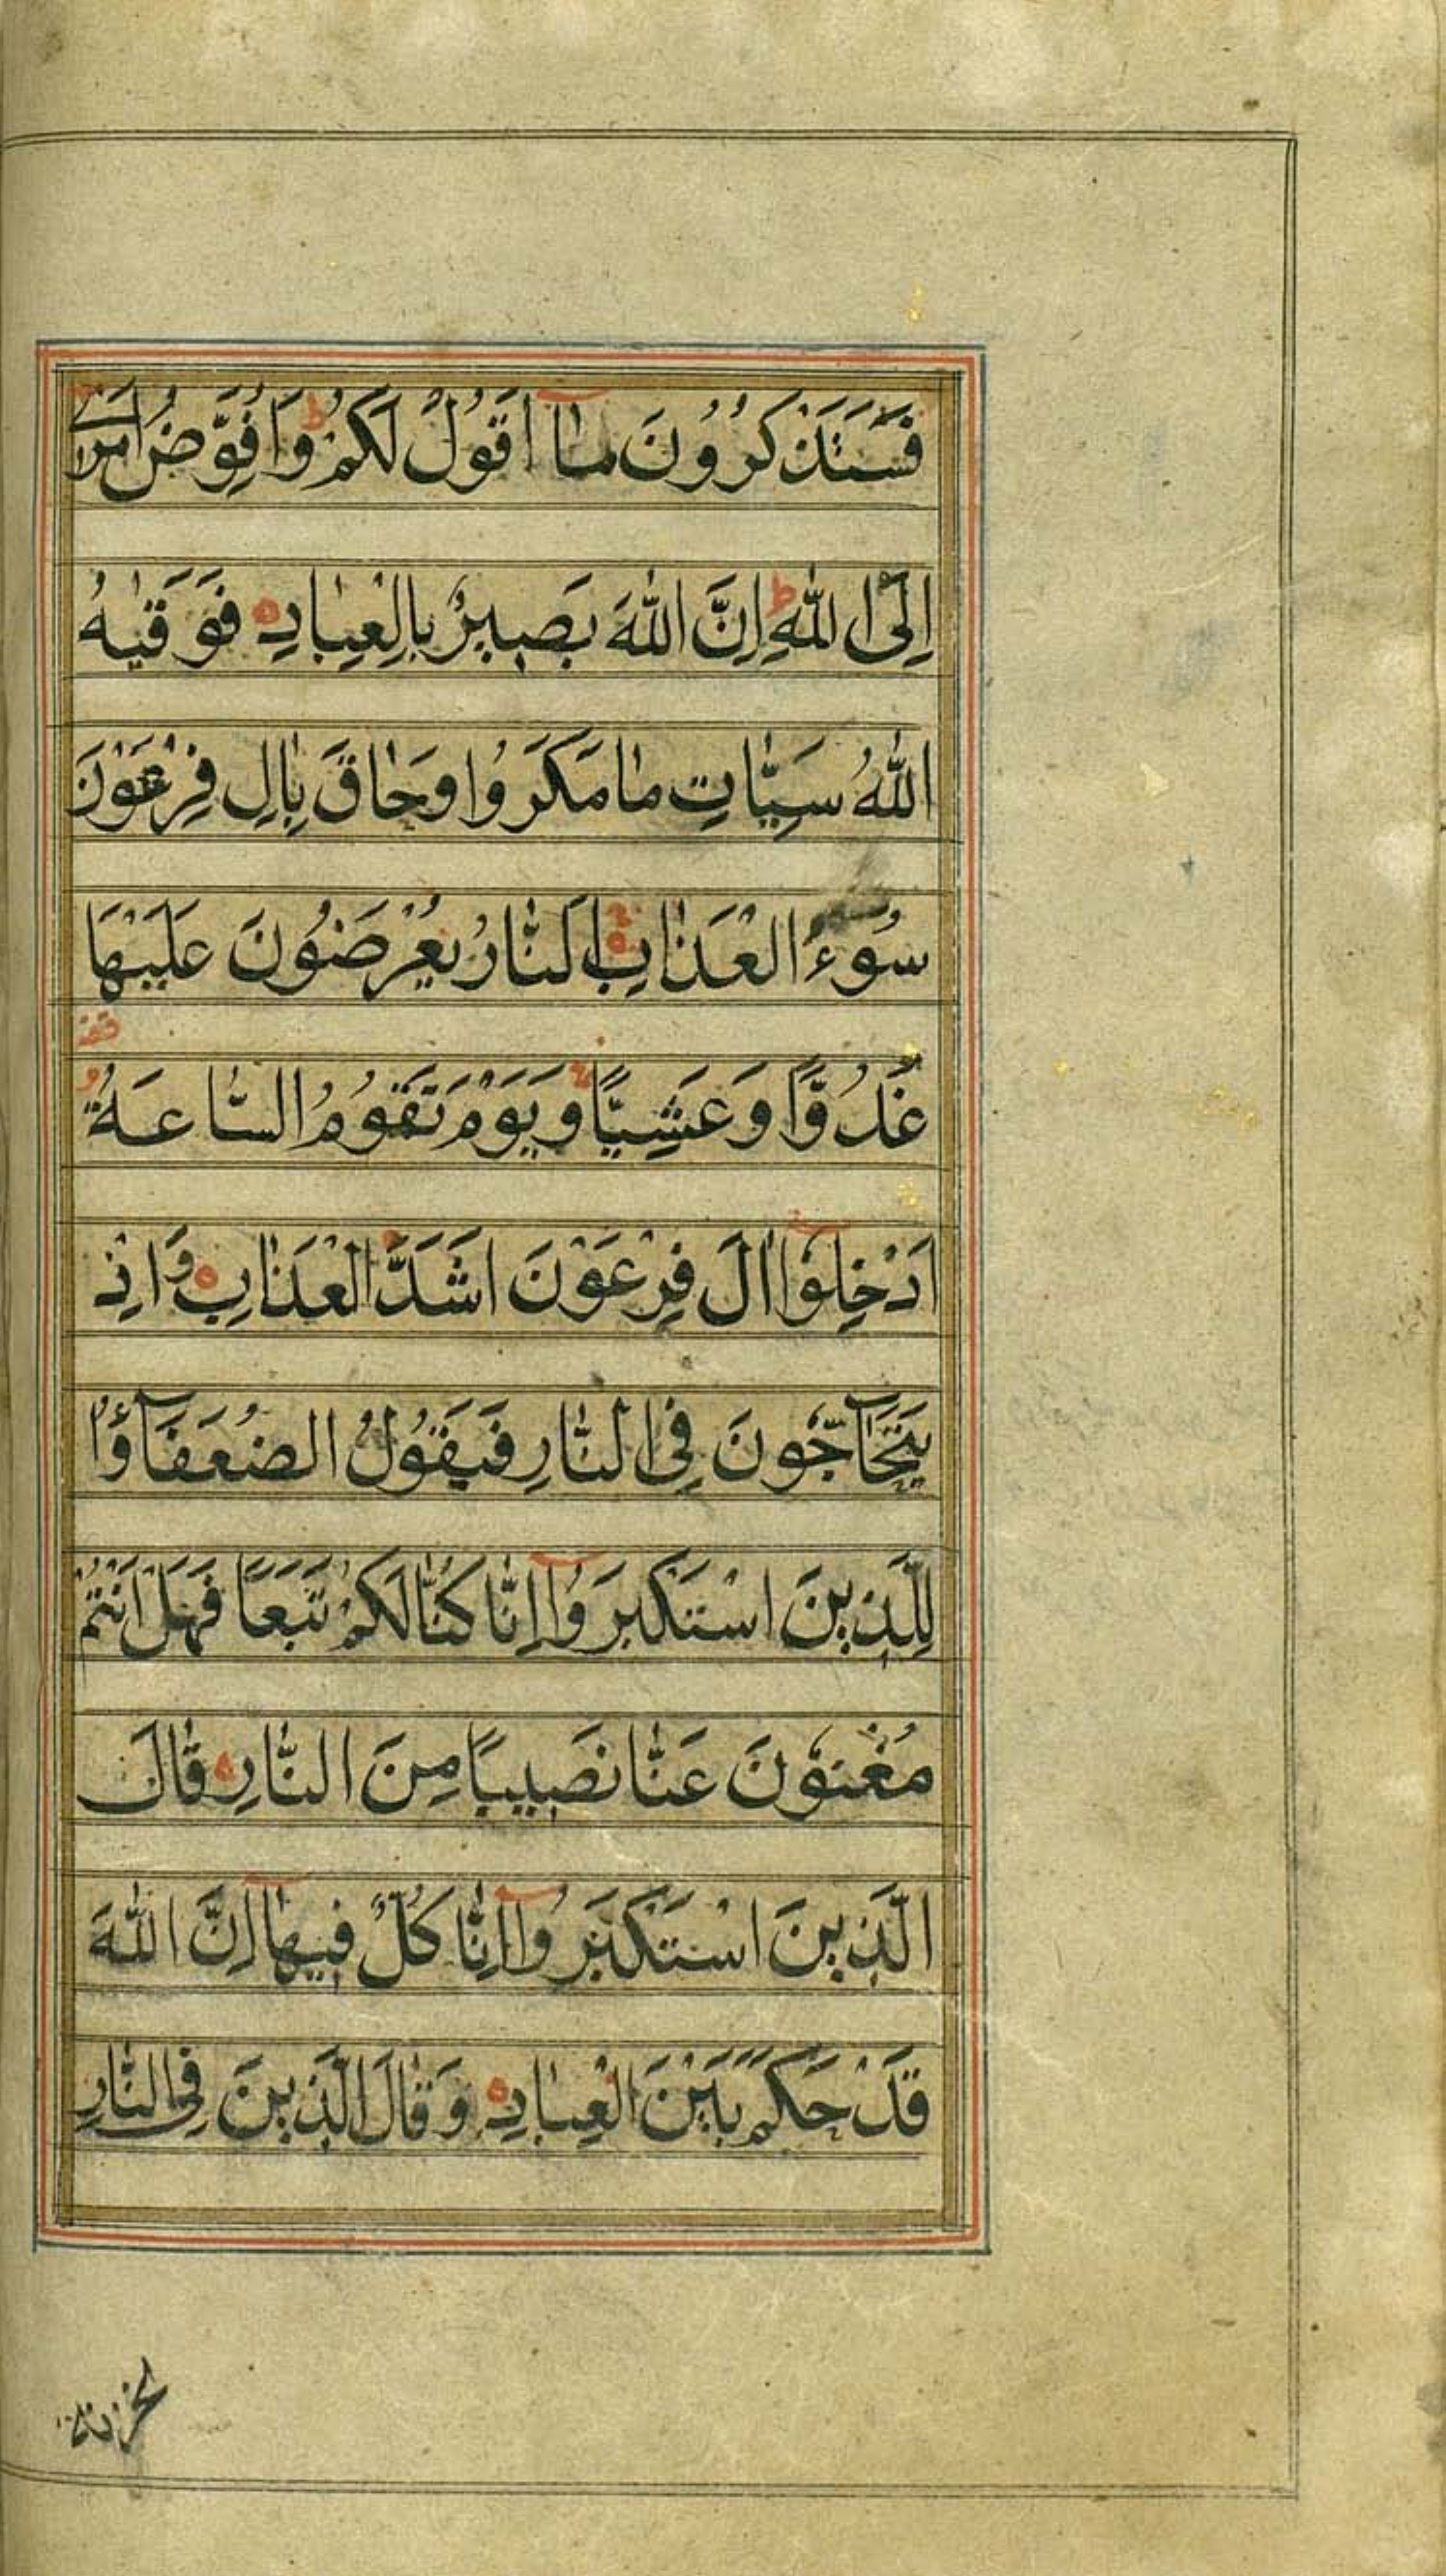 فَسَتَذْكُرُونَ مَآ اَقُولُ لَكُمْ ط وَاُفَوِّضُ اَمْرِىٓ
اِلَى اللّٰهِ ط اِنَّ اللّٰهَ بَصِيرٌ بِالْعِبَادِ ه فَوَقٰيهُ
اللّٰهُ سَيِّاٰتِ مَا مَكَرُوا وَحَاقَ بِاٰلِ فِرْعَوْنَ
سُوۤءُ الْعَذَابِ ه اَلنَّارُ يُعْرَضُونَ عَلَيْهَا
غُدُوًّا وَعَشِيًّا وَيَوْمَ تَقُومُ السَّاعَةُ قف
اَدْخِلُوٓا اٰلَ فِرْعَوْنَ اَشَدَّ الْعَذَابِ ه وَاِذْ
يَتَحَآجُّونَ فِى النَّارِ فَيَقُولُ الضُّعَفَآؤُا
لِلَّذِينَ اسْتَكْبَرُوٓا اِنَّا كُنَّا لَكُمْ تَبَعًا فَهَلْ اَنْتُمْ
مُغْنُونَ عَنَّا نَصِيبًا مِنَ النَّارِ ه قَالَ
الَّذِينَ اسْتَكْبَرُوٓا اِنَّا كُلٌّ فِيهَآ اِنَّ اللّٰهَ
قَدْ حَكَمَ بَيْنَ الْعِبَادِ ه وَقَالَ الَّذِينَ فِى النَّارِ
لخزنة